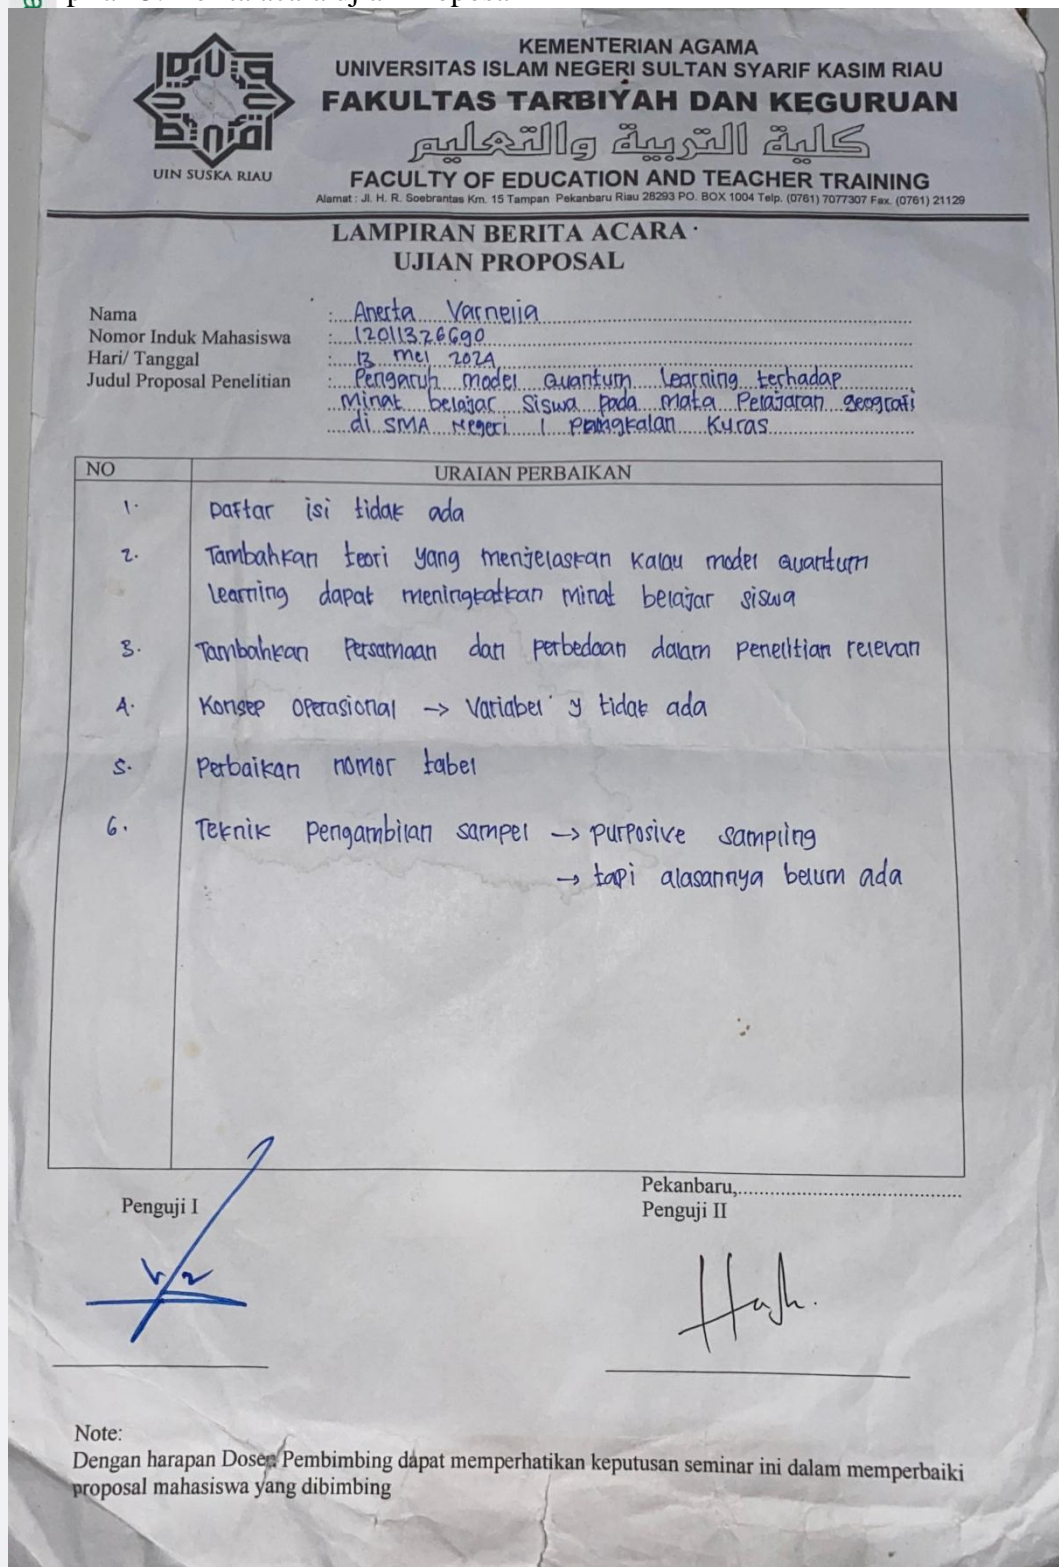 KEMENTERIAN AGAMA
UNIVERSITAS ISLAM NEGERI SULTAN SYARIF KASIM RIAU
FAKULTAS TARBIYAH DAN KEGURUAN
كلية التربية والتعليم
UIN SUSKA RIAU
FACULTY OF EDUCATION AND TEACHER TRAINING
Alamat : Jl. H. R. Soebrantas Km. 15 Tampan Pekanbaru Riau 28293 PO. BOX 1004 Telp. (0761) 7077307 Fax. (0761) 21129
LAMPIRAN BERITA ACARA
UJIAN PROPOSAL
Nama : Anerta Varnelia
Nomor Induk Mahasiswa : 12011326690
Hari/ Tanggal : 13 Mei 2024
Judul Proposal Penelitian : Pengaruh model Quantum Learning terhadap
Minat belajar Siswa pada Mata Pelajaran geografi
di SMA Negeri 1 Pangkalan Kuras
NO URAIAN PERBAIKAN
1. Daftar isi tidak ada
2. Tambahkan teori yang menjelaskan kalau model Quantum
learning dapat meningkatkan minat belajar siswa
3. Tambahkan Persamaan dan perbedaan dalam penelitian relevan
4. Konsep operasional → Variabel y tidak ada
5. Perbaikan nomor tabel
6. Teknik pengambilan sampel → purposive sampling
→ tapi alasannya belum ada
Pekanbaru,
Penguji I Penguji II
Note:
Dengan harapan Dosen Pembimbing dapat memperhatikan keputusan seminar ini dalam memperbaiki
proposal mahasiswa yang dibimbing